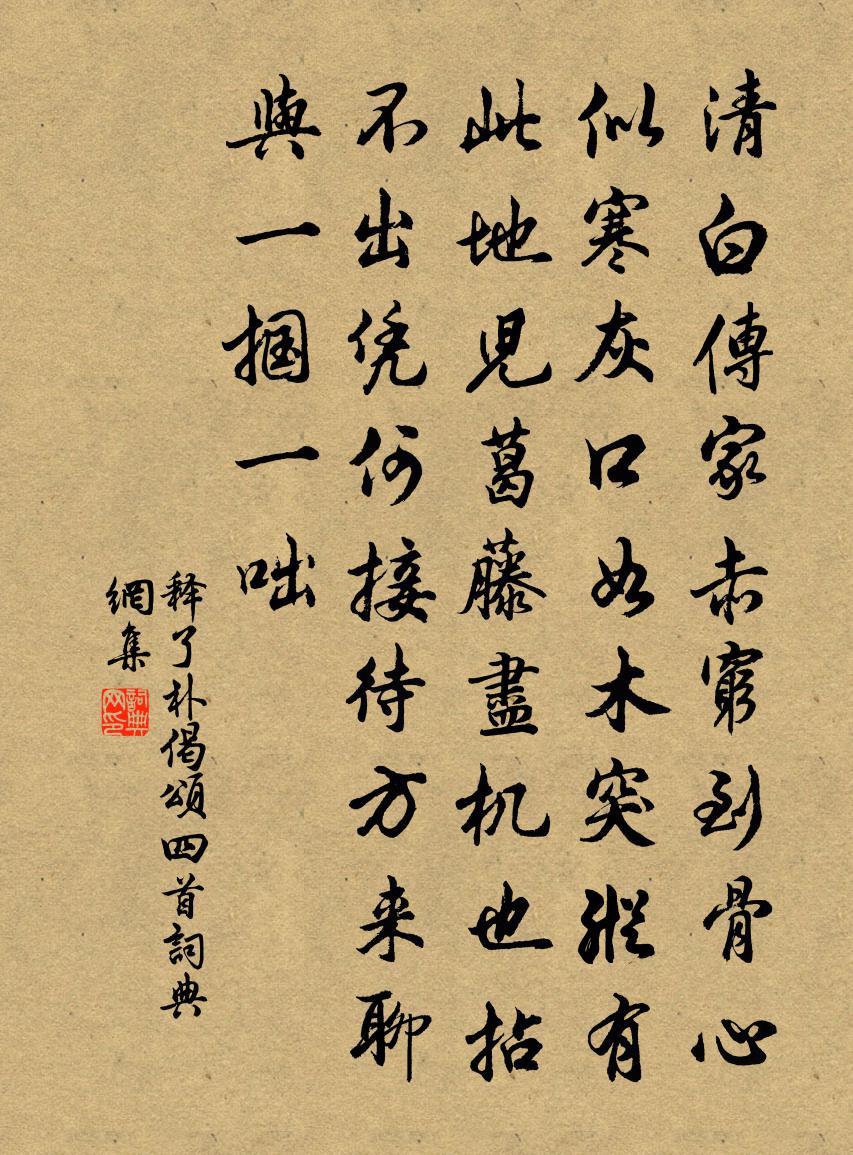 清白傳家赤窮到骨心
似寒灰口如木突縱有
此地児葛藤盡机也拈
不出凭何接待方来聊
與一掴一咄
释了朴偈頌四首詞典
網集
詞典网印